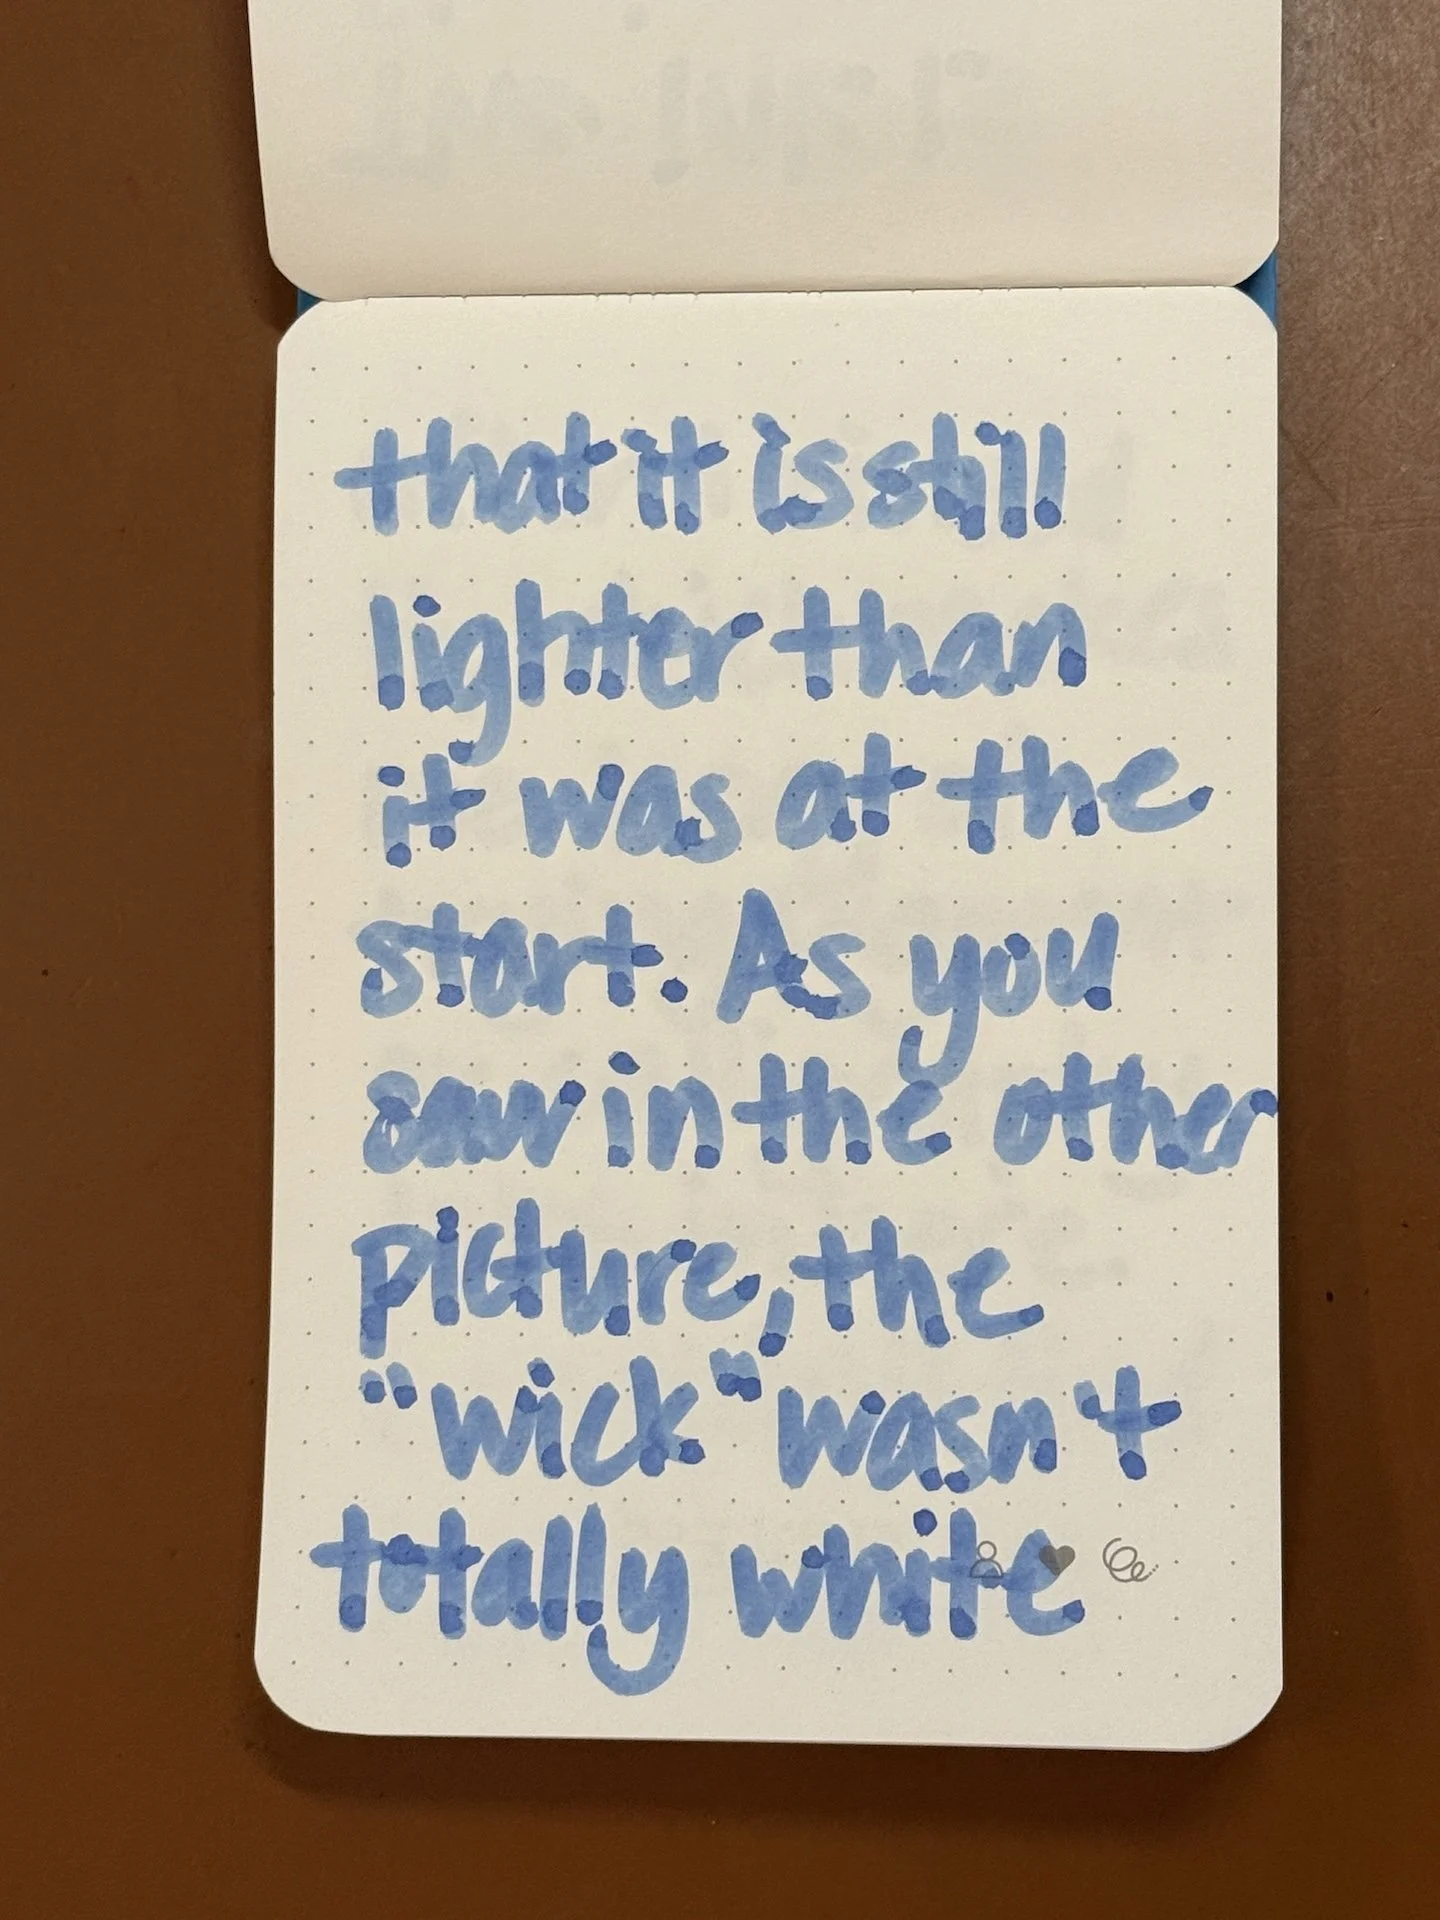 that it is still
lighter than
it was at the
start. As you
saw in the other
picture, the
"wick" wasn't
totally white